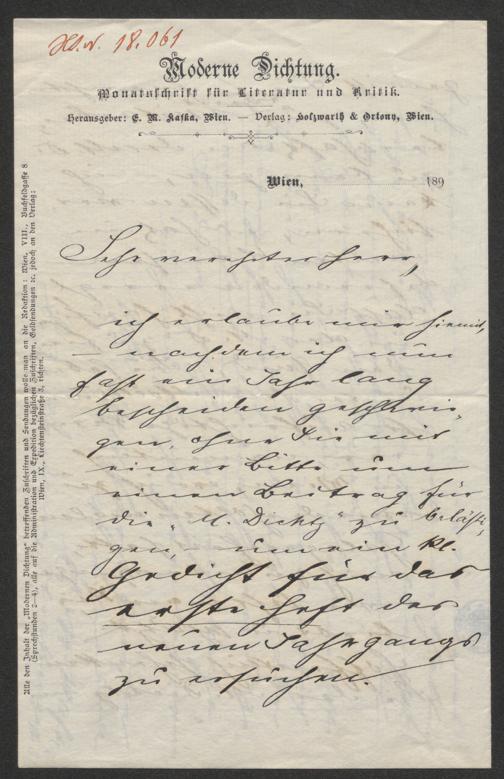 H.I.N. 18.061
Moderne Dichtung.
Monatsschrift für Literatur und Kritik.
Herausgeber: E. M. Kafka, Wien. — Verlag: Holzwarth & Ortony, Wien.
Wien, 189
Alle den Inhalt der „Modernen Dichtung" betreffenden Zuschriften und Sendungen wolle man an die Redaktion: Wien, VIII., Buchfeldgasse 8
(Sprechstunden 2—4), alle auf die Administration und Expedition bezüglichen Zuschriften, Geldsendungen ꝛc. jedoch an den Verlag:
Wien, IX., Liechtensteinstraße 5, richten.
Sehr verehrter Herr,
ich erlaube mir hiemit,
— nachdem ich nun
fast ein Jahr lang
bescheiden geschwie-
gen, ohne Sie mit
einer Bitte um
einen Beitrag für
die „M. Dichtg" zu belästi-
gen, — um ein kl.
Gedicht für das
erste Heft des
neuen Jahrgangs
zu ersuchen.